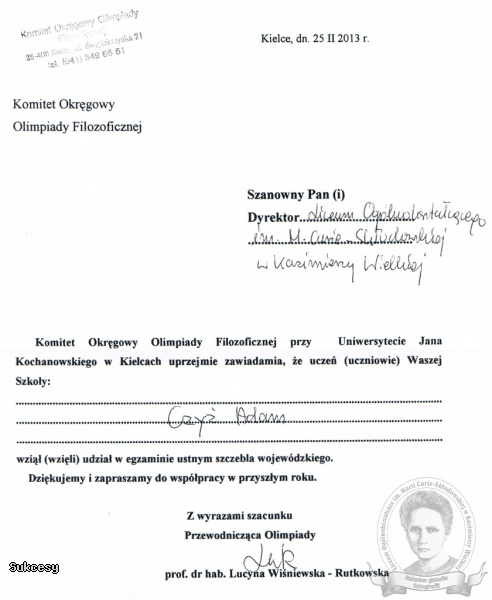 Komitet Okręgowy Olimpiady
Filozoficznej
25-406 Kielce, ul. Świętokrzyska 21
tel. (041) 349 65 61
Kielce, dn. 25 II 2013 r.
Komitet Okręgowy
Olimpiady Filozoficznej
Szanowny Pan (i)
Dyrektor Liceum Ogólnokształcącego
im. M. Curie-Skłodowskiej
w Kazimierzy Wielkiej
Komitet Okręgowy Olimpiady Filozoficznej przy Uniwersytecie Jana
Kochanowskiego w Kielcach uprzejmie zawiadamia, że uczeń (uczniowie) Waszej
Szkoły:
Czyż Adam
wziął (wzięli) udział w egzaminie ustnym szczebla wojewódzkiego.
Dziękujemy i zapraszamy do współpracy w przyszłym roku.
Z wyrazami szacunku
Przewodnicząca Olimpiady
prof. dr hab. Lucyna Wiśniewska - Rutkowska
Sukcesy
Liceum Ogólnokształcące im. Marii Curie-Skłodowskiej w Kazimierzy Wielkiej